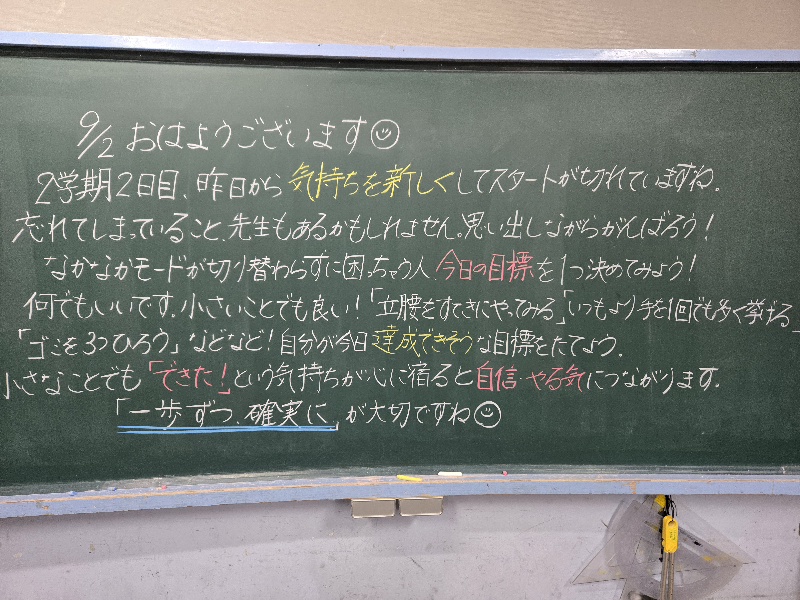 9/2 おはようございます☺
2学期2日目、昨日から気持ちを新しくしてスタートが切れていますね。
忘れてしまっていること、先生もあるかもしれません。思い出しながらがんばろう!
なかなかモードが切り替わらずに困っちゃう人 今日の目標を1つ決めてみよう!
何でもいいです。小さいことでも良い!「立腰をすてきにやってみる」「いつもより手を1回でも多く挙げる」
「ゴミを3つひろう」などなど!自分が今日達成できそうな目標をたてよう。
小さなことでも「できた!」という気持ちが心に宿ると自信・やる気につながります。
「一歩ずつ、確実に」が大切ですね☺